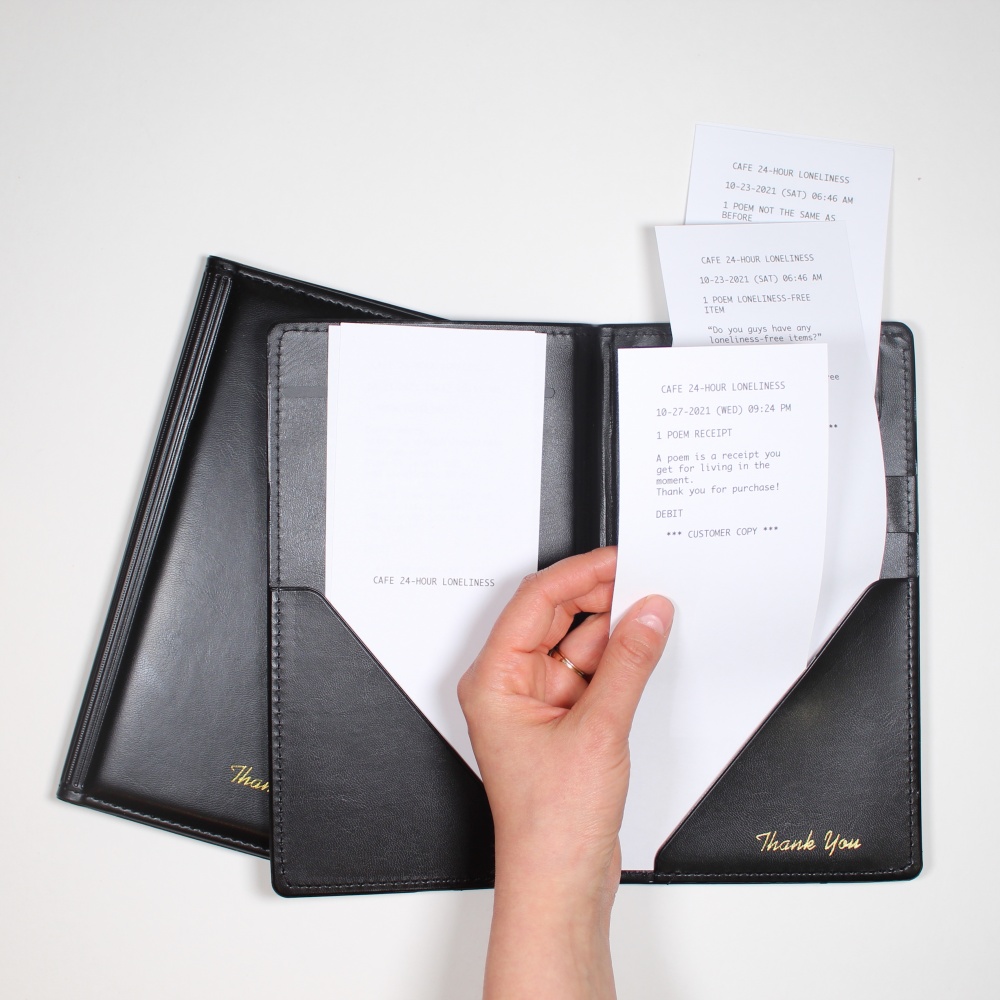 CAFE 24-HOUR LONELINESS
10-23-2021 (SAT) 06:46 AM
1 POEM NOT THE SAME AS
BEFORE
CAFE 24-HOUR LONELINESS
10-23-2021 (SAT) 06:46 AM
1 POEM LONELINESS-FREE
ITEM
“Do you guys have any
loneliness-free items?”
ee
**
CAFE 24-HOUR LONELINESS
10-27-2021 (WED) 09:24 PM
1 POEM RECEIPT
A poem is a receipt you
get for living in the
moment.
Thank you for purchase!
DEBIT
*** CUSTOMER COPY ***
CAFE 24-HOUR LONELINESS
Than
Thank You